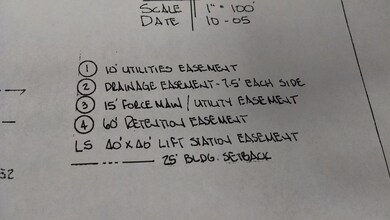 SCALE 1" = 100'
DATE 10-05
1 10' UTILITIES EASEMENT
2 DRAINAGE EASEMENT - 7.5' EACH SIDE
3 15' FORCE MAIN / UTILITY EASEMENT
4 60' RETENTION EASEMENT
LS 40' x 40' LIFT STATION EASEMENT
25' BLDG. SETBACK
32